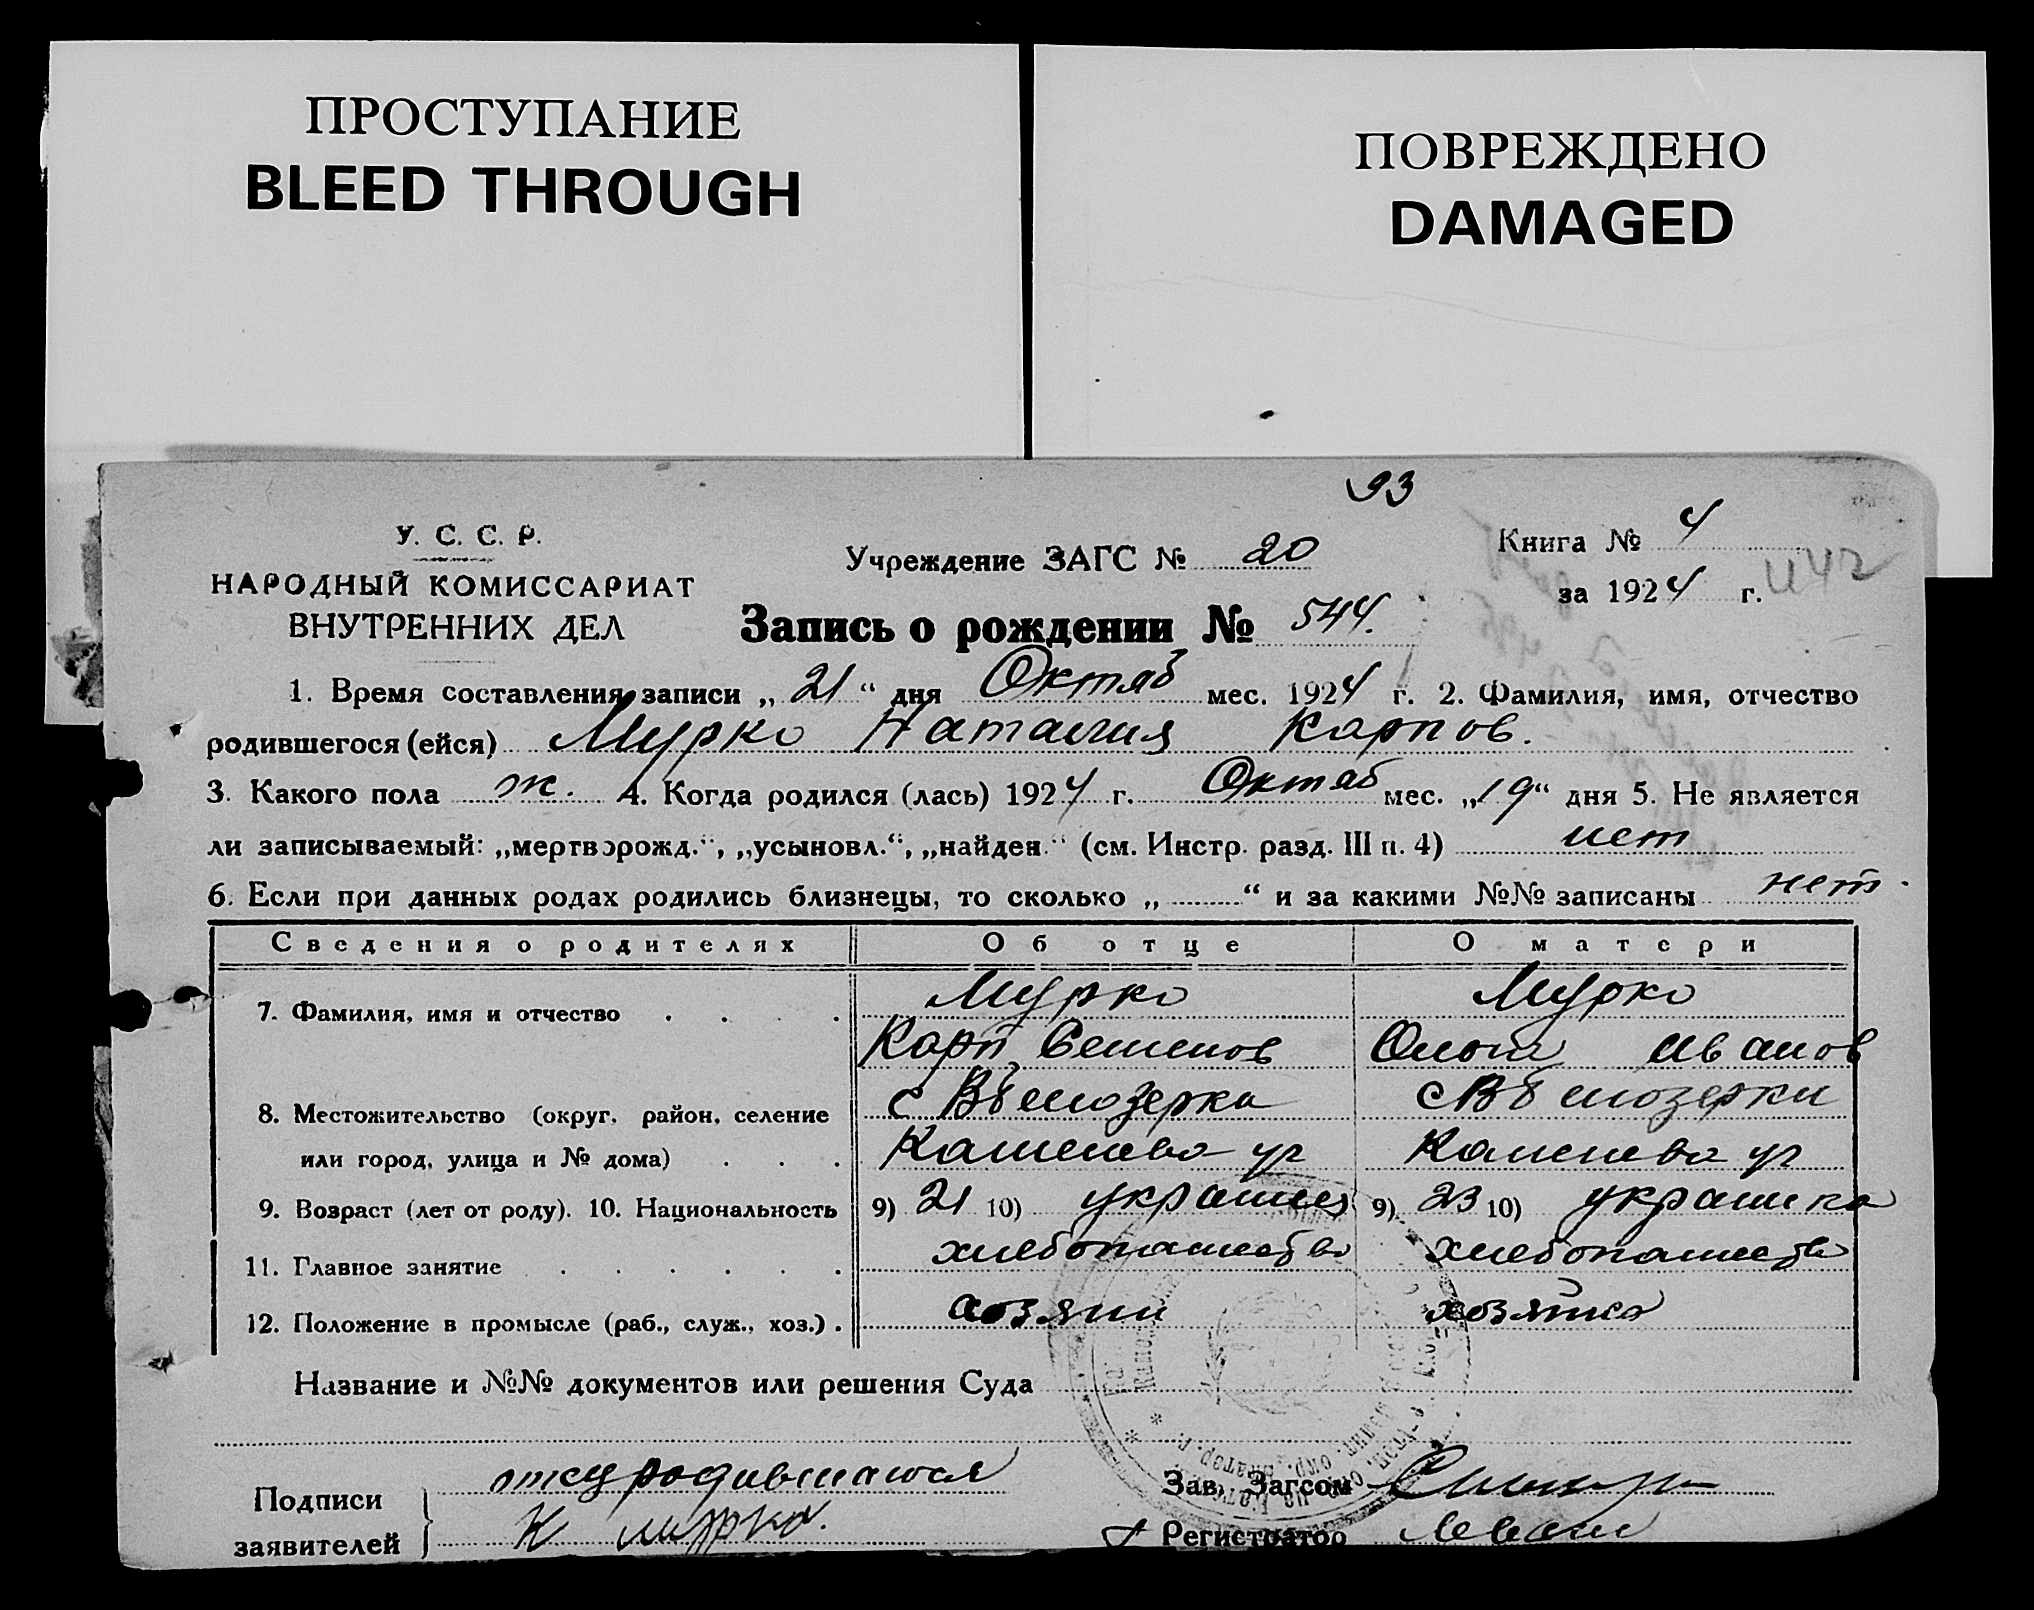 ПРОСТУПАНИЕ
BLEED THROUGH
ПОВРЕЖДЕНО
DAMAGED
93
У. С. С. Р.
НАРОДНЫЙ КОМИССАРИАТ
ВНУТРЕННИХ ДЕЛ
Учреждение ЗАГС № 20
Книга № 4
за 1924 г.
Запись о рождении № 544.
1. Время составления записи „21“ дня Октяб мес. 1924 г. 2. Фамилия, имя, отчество
родившегося (ейся) Мурко Наталия Карпов.
3. Какого пола ж. 4. Когда родился (лась) 1924 г. Октяб мес. „19“ дня 5. Не является
ли записываемый: „мертворожд.“, „усыновл.“, „найден.“ (см. Инстр. разд. III п. 4) нет
6. Если при данных родах родились близнецы, то сколько „ “ и за какими №№ записаны нет.
Сведения о родителях Об отце О матери
7. Фамилия, имя и отчество Мурко Мурко
Карп Семенов Иванов
8. Местожительство (округ, район, селение с Белозерка с Белозерки
или город, улица и № дома) Каменева ул Каменева ул
9. Возраст (лет от роду). 10. Национальность 9) 21 10) украинец 9) 23 10) украинка
11. Главное занятие хлебопашество хлебопашество
12. Положение в промысле (раб., служ., хоз.) хозяин хозяйка
Название и №№ документов или решения Суда
Подписи
заявителей
отец родившагося
К Мурко.
Зав. Загсом
Регистратор